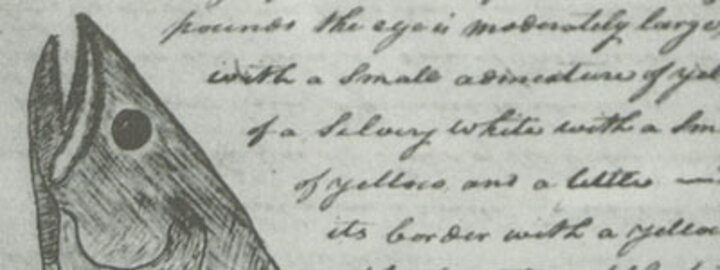 pounds the eye is moderately large,
with a small admixture of yel
of a silvery white with a sm
of yellow and a little —
its border with a yellow